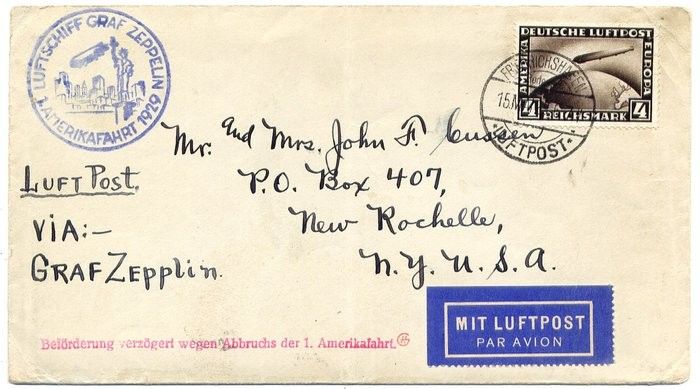 LUFTSCHIFF GRAF ZEPPELIN
1. AMERIKAFAHRT 1929
DEUTSCHE LUFTPOST
AMERIKA
EUROPA
4
4
REICHSMARK
FRIEDRICHSHAFEN
15.M
LUFTPOST
Mr. and Mrs. John F. Cussen
P.O. Box 407,
New Rochelle,
N.Y. U.S.A.
LUFT POST.
VIA:-
GRAF ZEPPLIN.
MIT LUFTPOST
PAR AVION
Beförderung verzögert wegen Abbruchs der 1. Amerikafahrt.